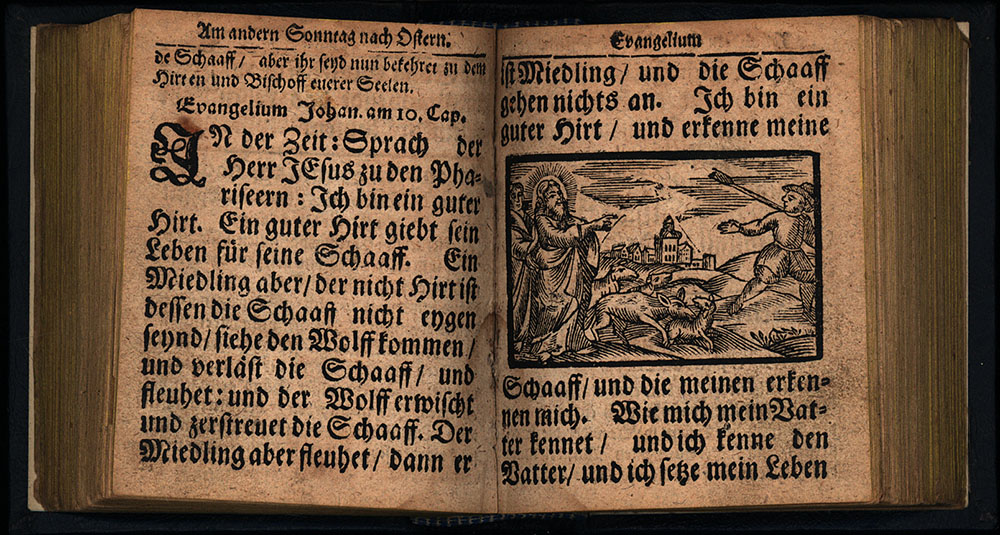 Am andern Sonntag nach Ostern.
de Schaaff / aber ihr seyd nun bekehret zu dem
Hirten und Bischoff euerer Seelen.
Evangelium Johan. am 10. Cap.
IN der Zeit: Sprach der
Herr JEsus zu den Pha-
riseern: Ich bin ein guter
Hirt. Ein guter Hirt giebt sein
Leben für seine Schaaff. Ein
Miedling aber / der nicht Hirt ist
dessen die Schaaff nicht eygen
seynd / siehe den Wolff kommen /
und verläst die Schaaff / und
fleuhet: und der Wolff erwischt
und zerstreuet die Schaaff. Der
Miedling aber fleuhet / dann er
Evangelium
ist Miedling / und die Schaaff
gehen nichts an. Ich bin ein
guter Hirt / und erkenne meine
Schaaff / und die meinen erken-
nen mich. Wie mich mein Vat-
ter kennet / und ich kenne den
Vatter / und ich setze mein Leben